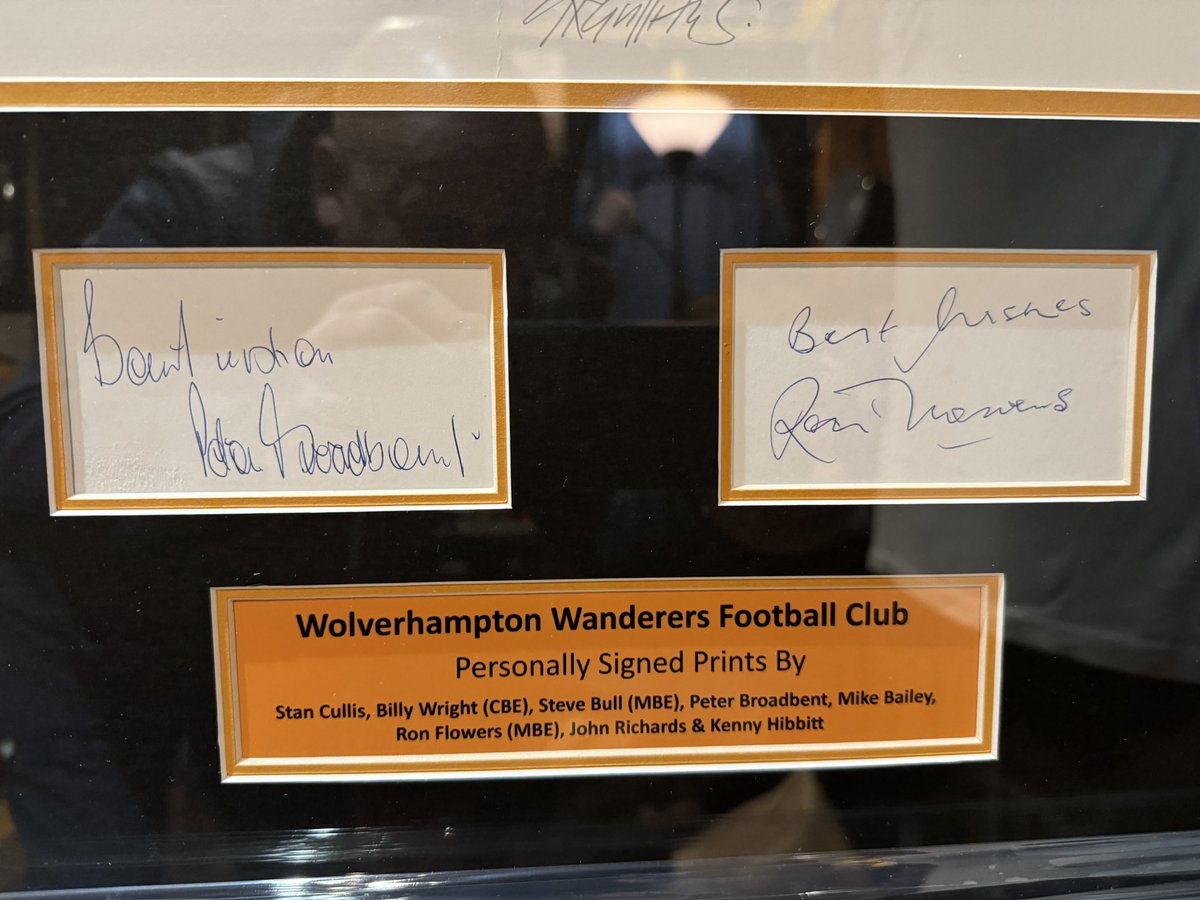 Best wishes
Peter Broadbent
Best Wishes
Ron Flowers
Wolverhampton Wanderers Football Club
Personally Signed Prints By
Stan Cullis, Billy Wright (CBE), Steve Bull (MBE), Peter Broadbent, Mike Bailey,
Ron Flowers (MBE), John Richards & Kenny Hibbitt